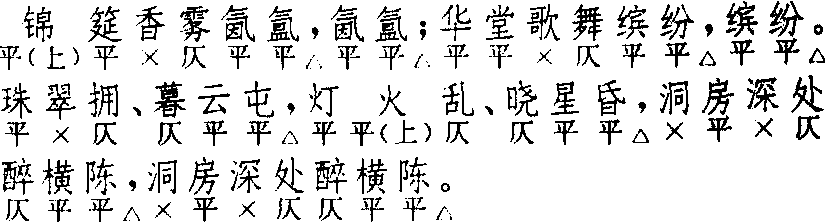 锦 筵香雾氤氲，氤氲；华堂歌舞缤纷，缤纷。
平(上)平×仄平平△平平△平平×仄平平△平平△
珠翠拥、暮云屯，灯 火 乱、晓星昏，洞房深处
平×仄 仄平平△平平(上)仄 仄平平△×平×仄
醉横陈，洞房深处醉横陈。
仄平平△×平×仄仄平平△